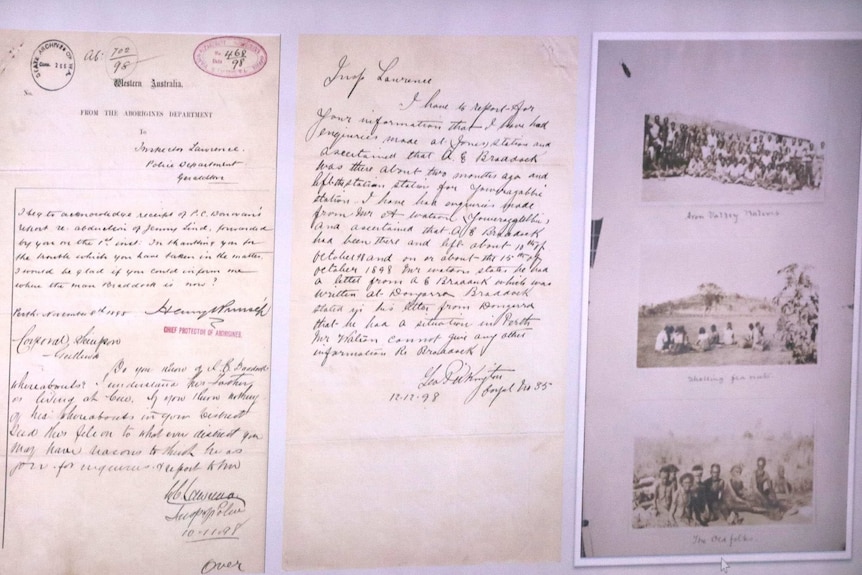 STATE ARCHIVES OF W.A.
Ab: 702
98
No. 468
Date 98
Western Australia.
No.
FROM THE ABORIGINES DEPARTMENT
To
Inspector Lawrence.
Police Department
Geraldton
I beg to acknowledge receipt of P.C. Donovan's
report re abduction of Jenny Lind, forwarded
by you on the 1st inst: In thanking you for
the trouble which you have taken in the matter,
I would be glad if you could inform me
where the man Braddock is now?
Perth November 8th 1898
CHIEF PROTECTOR OF ABORIGINES.
Corporal Simpson
Do you know of A. E. Braddock
whereabouts? I understand his Father
is living at Cue. If you know nothing
of his whereabouts in your District
send this file on to what ever district you
may have reasons to think he has
gone for enquiries & report to me
Lawrence
Insp of Police
10-11-98
Over
Insp Lawrence
I have to report for
Your information that I have had
enquiries made at Jones Station and
ascertained that A E Braddock
was there about two months ago and
left the station for Yowragabbi
station. I have had enquiries made
from Mr A Watson
and ascertained that A E Braddock
had been there and left about 10th of
October 98 and on or about the 15th of
October 1898 Mr Watson states he had
a letter from A E Braddock which was
written at Dongarra Braddock
stated in his letter from Dongarra
that he had a situation in Perth
Mr Watson cannot give any other
information Re Braddock
Geo Pilkington
Corpl No 35
12-12-98
Natives
The Old folks.